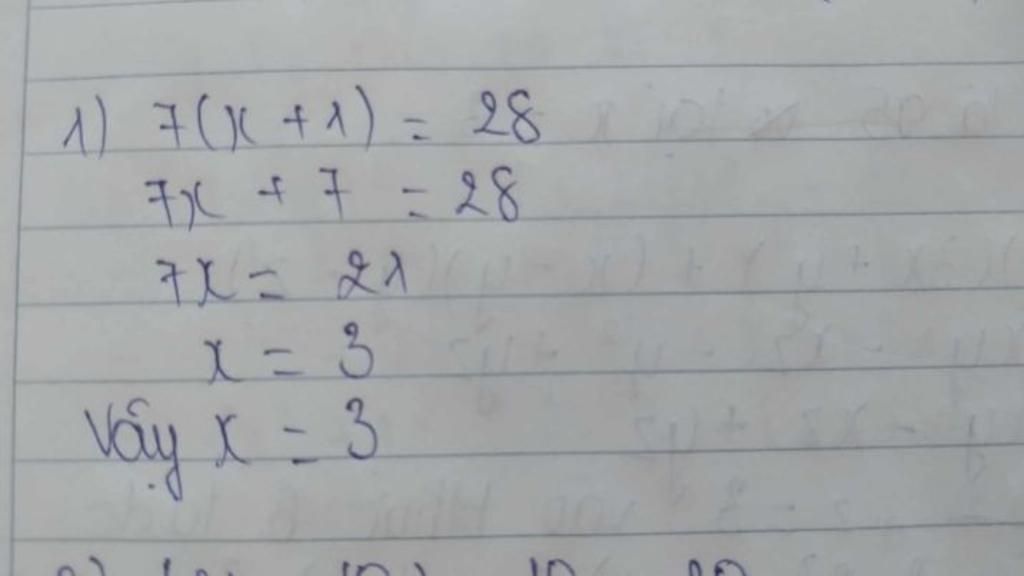 1) 7(x + 1) = 28
7x + 7 = 28
7x = 21
x = 3
Vậy x = 3